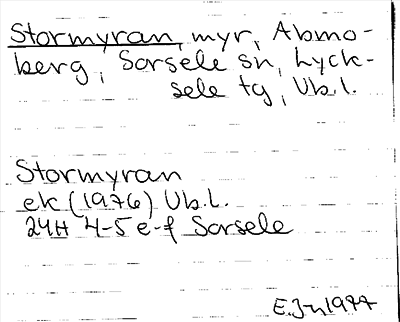 Stormyran, myr, Abmo-
berg, Sorsele sn, Lyck-
sele tg, Vb.l.
Stormyran
ek (1976) Vb.l.
24H 4-5 e-f Sorsele
E.J-n 1977